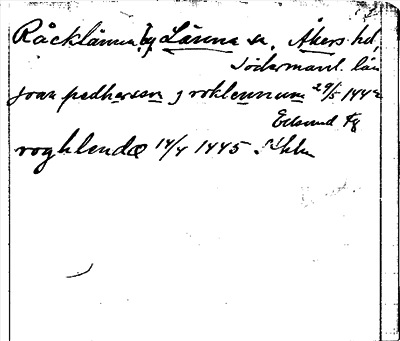 Råcklänna, by Länna sn, Åkers hd,
Södermanl. län
joan pædharson j roklennum 29/5 1442
Edsund fg
roghlendæ 14/4 1445